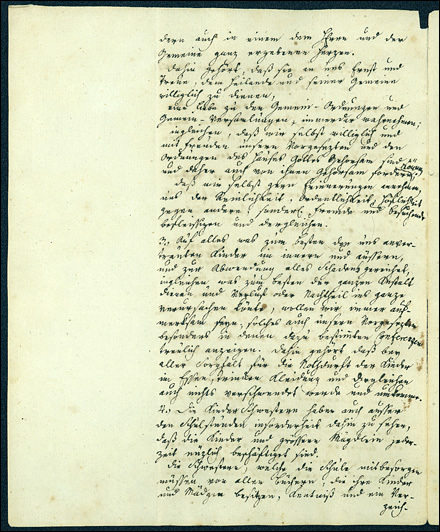 dern auch in einem dem Herrn und der
Gemeine ganz ergebenen Herzen.
Dahin gehört, daß sie in uns Ernst und
Treue dem Heilande und seiner Gemeine
williglich zu dienen,
eine Liebe zu den Gemein-Ordnungen und
Gemein-Versamlungen, immerdar wahrnehmen;
ingleichen, daß wir selbst williglich und
mit Freuden unsern Vorgesezten und den
Ordnungen des Hauses Gottes Gehorsam sind
und daher auch von ihnen Gehorsam fordern können
daß wir selbst gern Erinnerungen annehmen,
uns der Reinlichkeit, Ordentlichkeit, Höflichkeit
gegen andere, sonderl. Fremde und Besuchende
befleißigen und dergleichen.
3. Auf alles was zum besten der uns anver-
trauten Kinder im innern und äussern,
und zur Abwendung alles Schadens gereichet,
ingleichen was zum besten der ganzen Anstalt
dienen und Verlust oder Nachtheil ins ganze
verursachen könte, wollen wir immer auf-
merksam seyn, solches auch unsern Vorgesezten
besonders in denen dazu bestimten Conferenzen
treulich anzeigen. Dahin gehört daß bey
aller Sorgfalt für die Nothdurft der Kinder
in Essen, Trinken, Kleidung und dergleichen
auch nichts verschwendet werde und umkomme.
4. Die Kinder Schwestern haben auch ausser
den Schulstunden insonderheit dahin zu sehen,
daß die Kinder und grössern Mägdlein jeder-
zeit nüzlich beschäftiget sind.
Die Schwestern, welche die Schule mitbesorgen
müssen vor allen Büchern, die ihre Kinder
und Mädgen besitzen, Kentniß und ein Ver-
zeich-